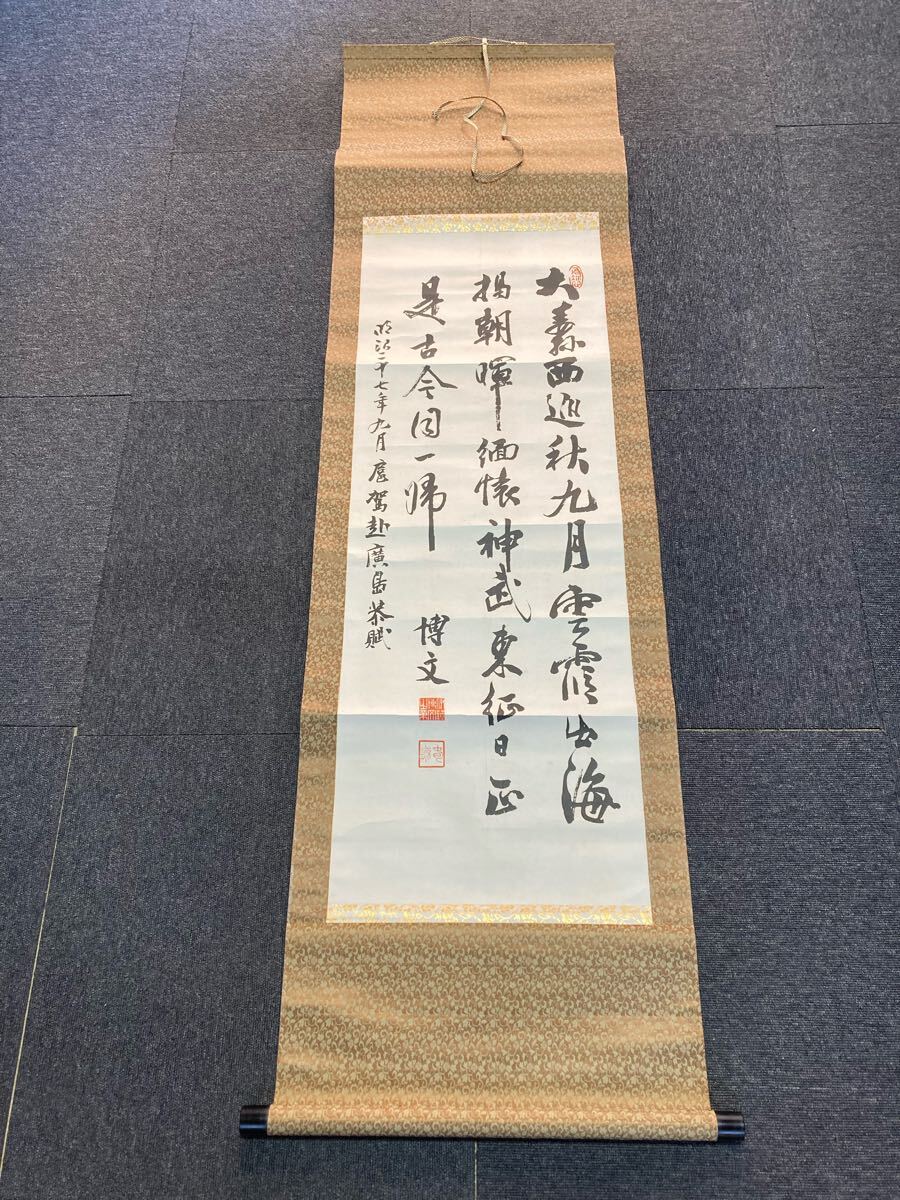 大纛西巡秋九月雲霞出海
揚朝暉緬懐神武東征日正
是古今同一帰
明治二十七年九月扈駕赴廣島恭賦
博文